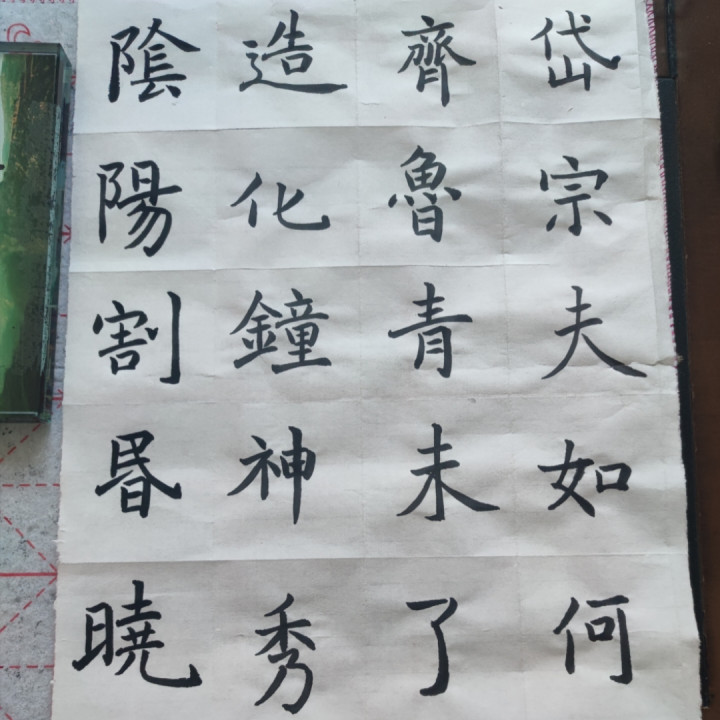 岱宗夫如何
齊魯青未了
造化鐘神秀
陰陽割昬曉